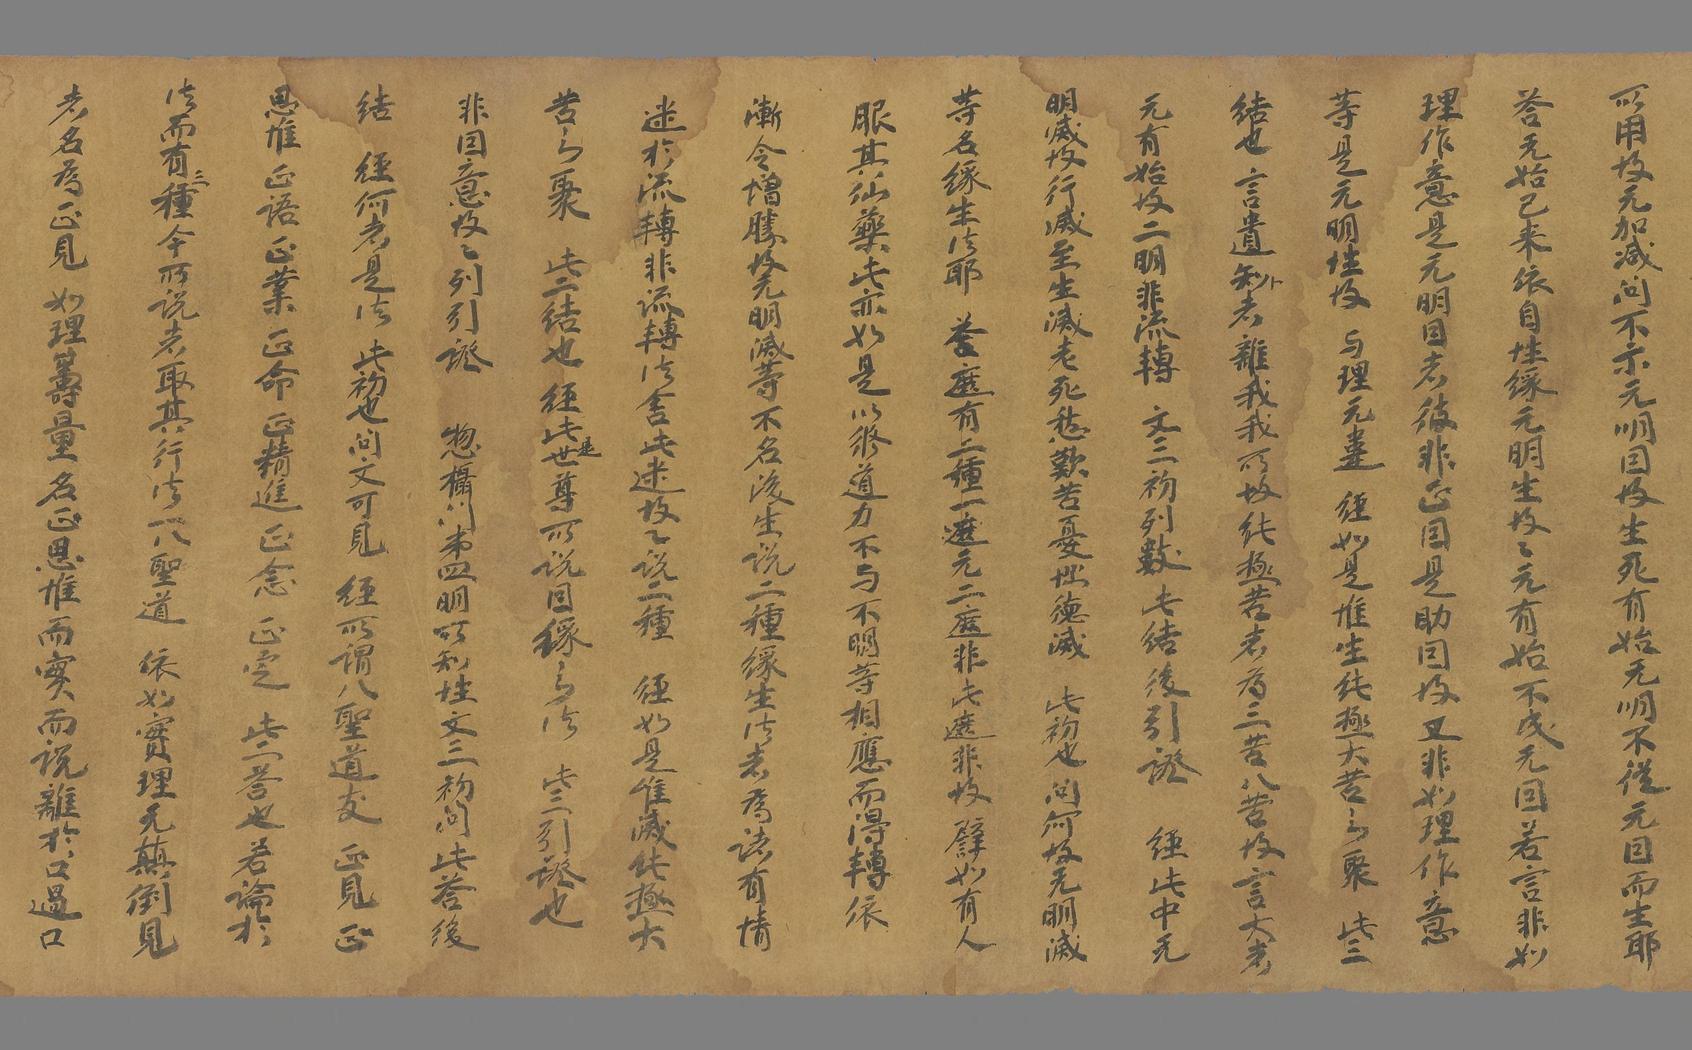 所用故无加减问不示无明因故生死有始无明不從无因而生耶
荅无始已来依自性缘无明生故〻无有始不成无因若言非如
理作意是无明因者彼非正因是助因故又非如理作意
等是无明性故 与理无违 經如是唯生纯極大苦之聚 此三
結也 言遣知者離我我所故纯極苦者为三苦八苦故言大者
无有始故二明非流轉 文三初列數此結後引證 經此中无
明滅故行滅至生滅老死愁歎苦憂惱滅 此初也 问何故无明滅
等名缘生法耶 荅遮有二種一遮无二遮非此遮非故 譬如有人
服其仙藥此亦如是以修道力不与不明等相應而得轉依
漸令增勝故无明滅等不名後生説二種缘生法者為諸有情
迷於流轉非流轉法舍此迷故〻説二種 經如是唯滅纯極大
苦之聚 此二結也 經此是世尊所説因缘之法 此三引證也
非因意故〻列引證 惣攝门第四明所知性文三初问此荅後
結 經何者是法 此初也问文可見 經所谓八聖道支 正見正
思惟正語正業正命正精進正念正定 此二荅也若論於
法而有三種今所説者取其行法八聖道 依如實理无顛倒見
者名為正見 如理籌量名正思惟而實而説離於口過口